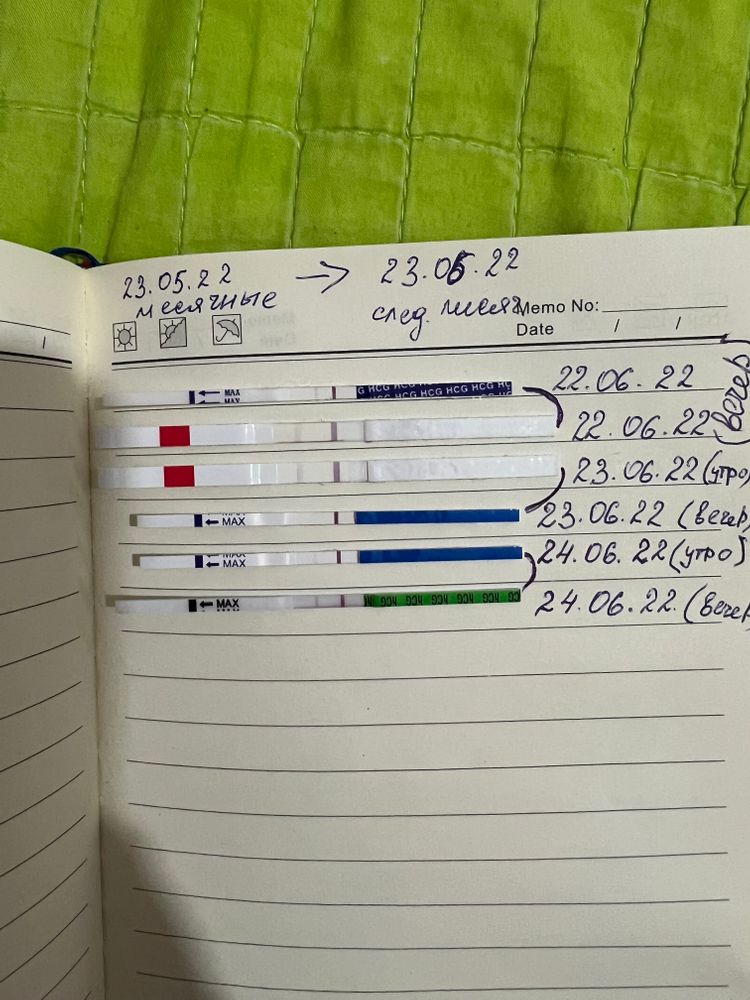 23.05.22 → 23.06.22
месячные след. месяч
Memo No:
Date / /
← MAX HCG HCG HCG HCG HCG 22.06.22
22.06.22 (вечер)
23.06.22 (утро)
← MAX 23.06.22 (вечер)
← MAX 24.06.22 (утро)
← MAX HCG HCG HCG HCG HCG 24.06.22. (вечер)